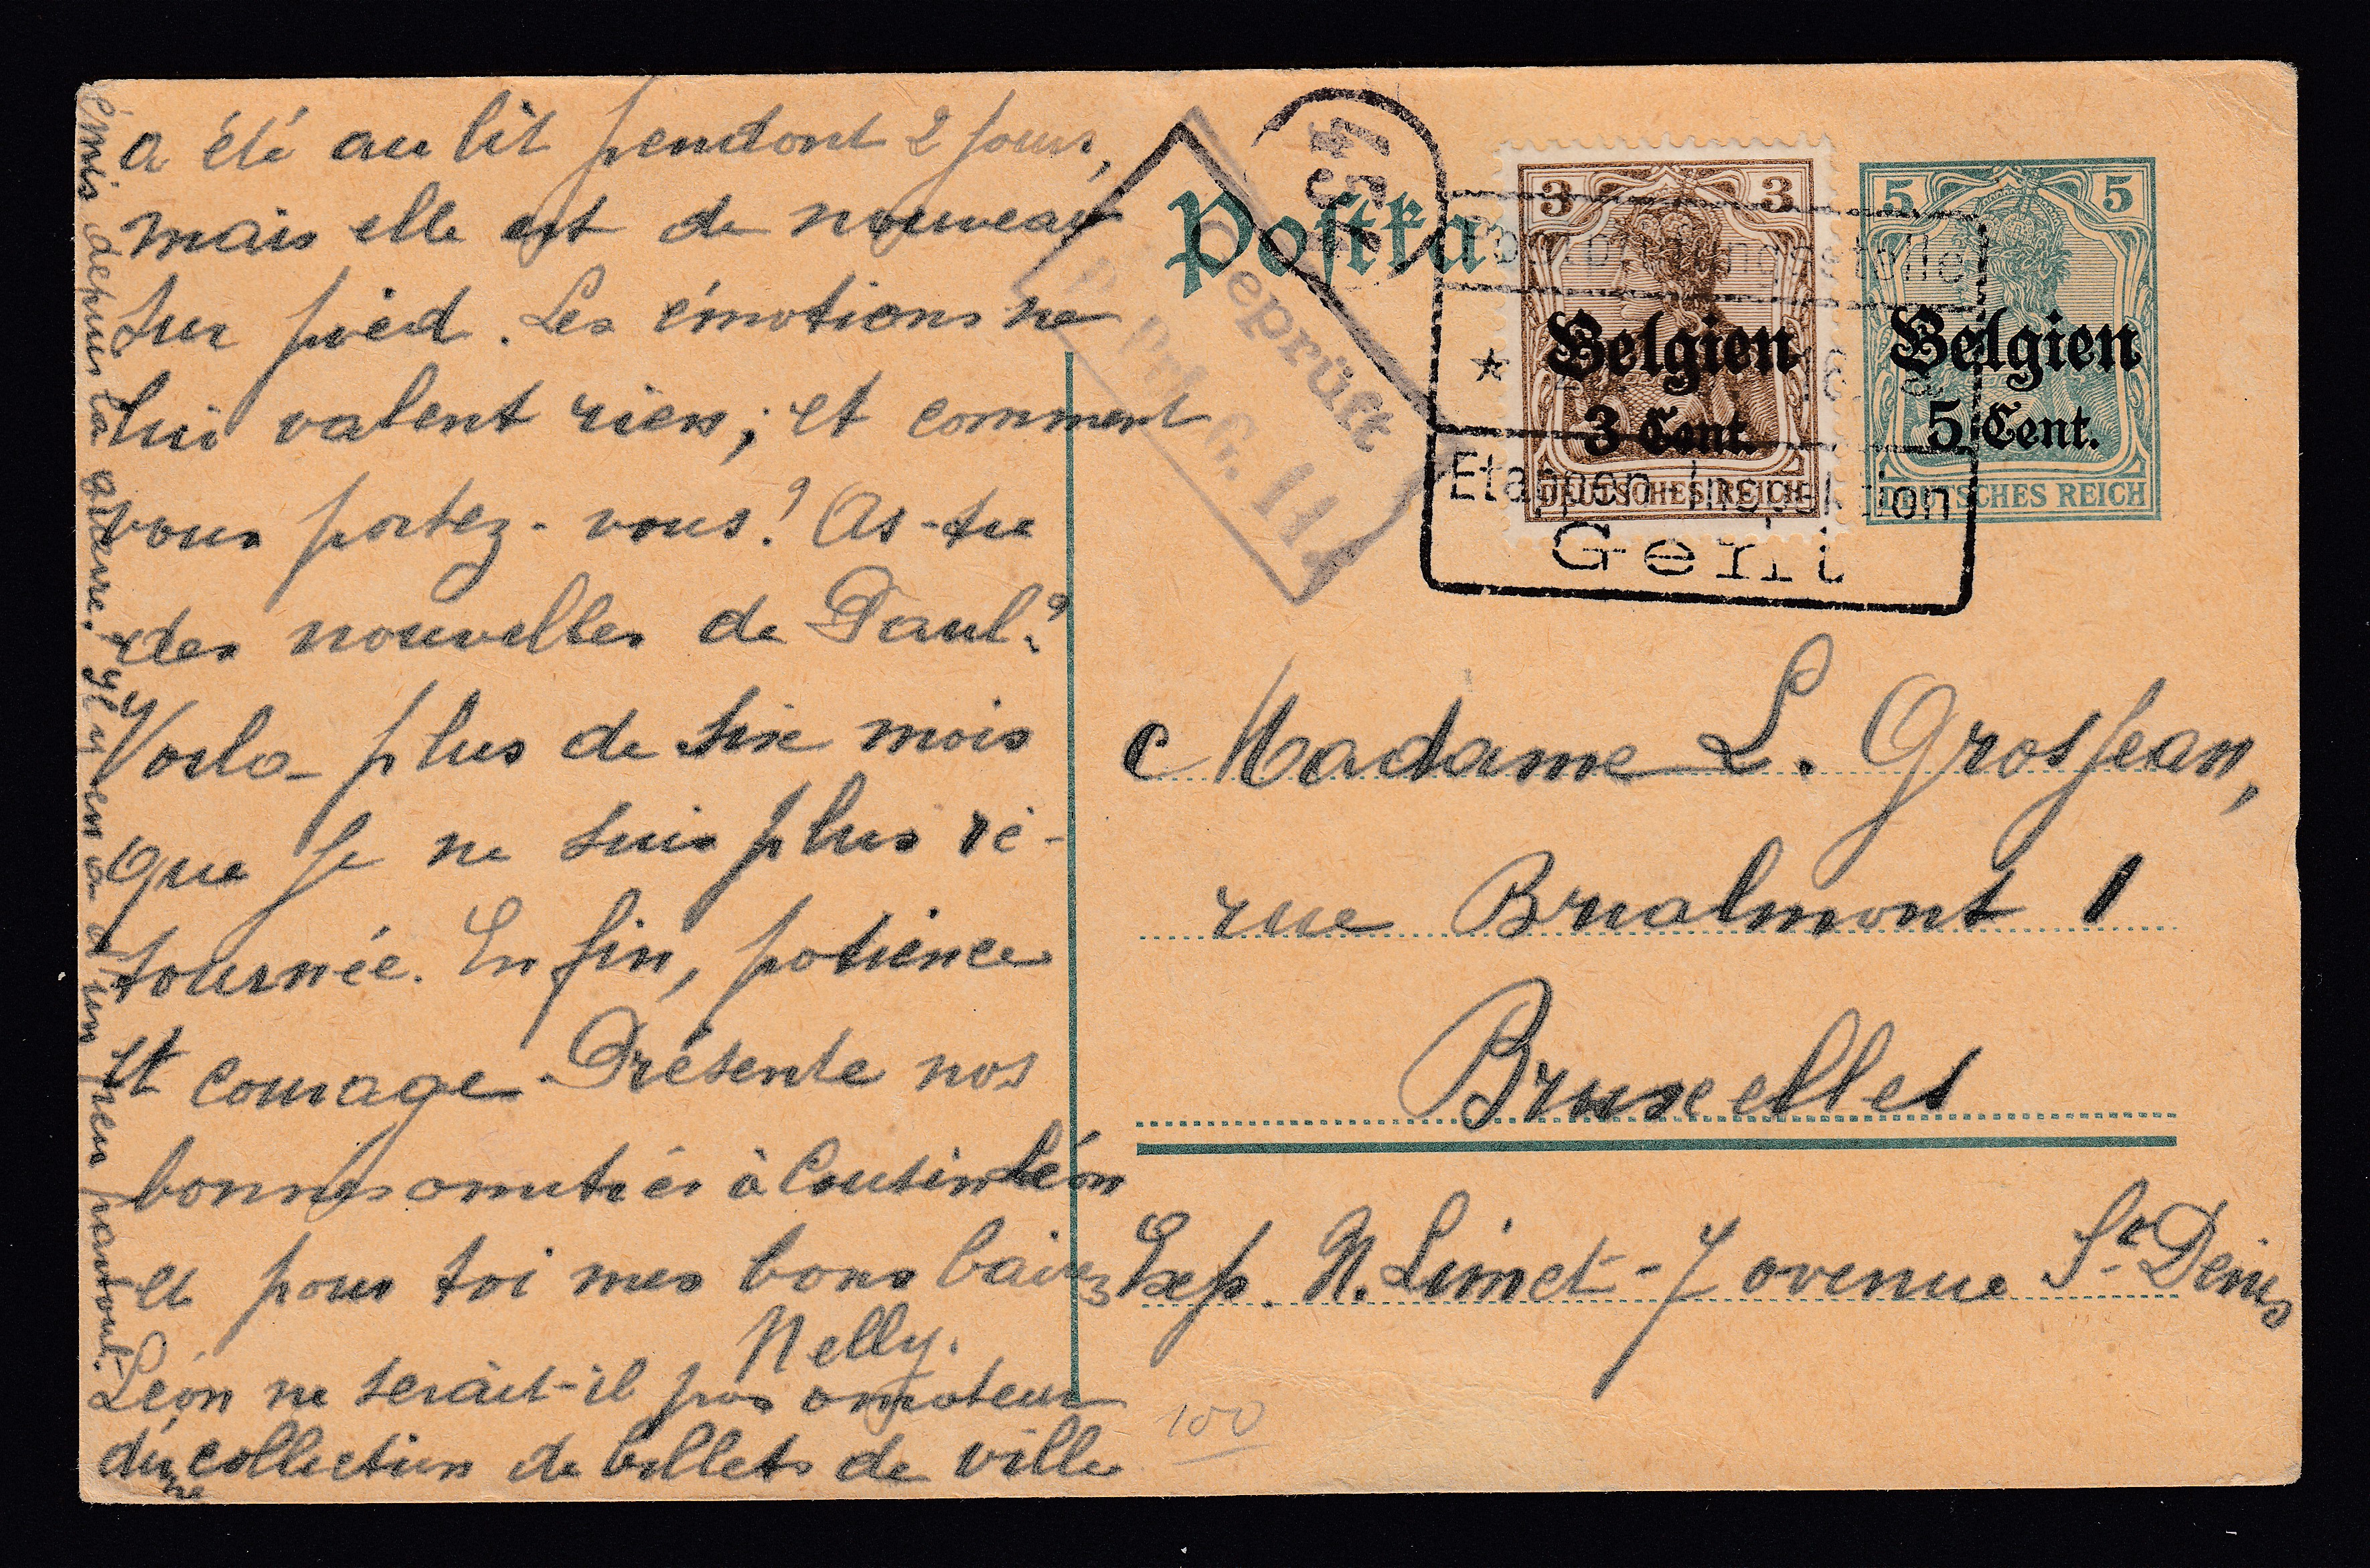 a été au lit pendant 2 jours,
mais elle est de nouveau
sur pied. Les émotions ne
lui valent rien; et comment
vous portez-vous? As-tu
des nouvelles de Paul?
Voila plus de six mois
que je ne suis plus re-
tournée. Enfin, patience
et courage. Présente nos
bonnes amitiés à Cousin Léon
et pour toi mes bons baisers
Nelly.
Léon ne serait-il pas amateur
d'une collection de billets de ville
émis depuis la guerre. Il y en a d'un peu partout.
Postka
Geprüft
P. G. 11.
45
3 3
Belgien
3 Cent.
DEUTSCHES REICH
5 5
Belgien
5 Cent.
DEUTSCHES REICH
*
Etappen Inspektion
Gent
Madame L. Grosjean,
rue Brialmont 1
Bruxelles
Exp. N. Limet - 7 avenue St Denis
100